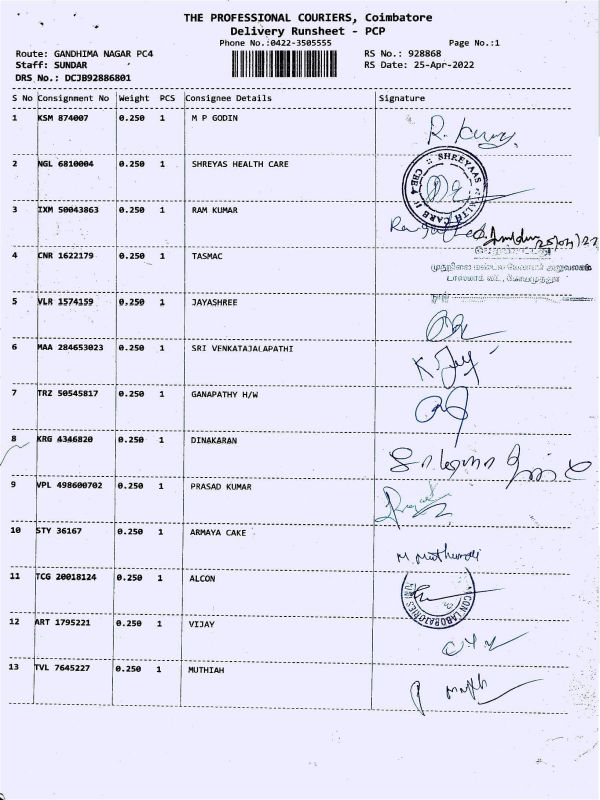 THE PROFESSIONAL COURIERS, Coimbatore
Delivery Runsheet - PCP
Phone No.:0422-3505555 Page No.:1
Route: GANDHIMA NAGAR PC4 RS No.: 928868
Staff: SUNDAR RS Date: 25-Apr-2022
DRS No.: DCJB92886801
S No Consignment No Weight PCS Consignee Details Signature
1 KSM 874007 0.250 1 M P GODIN
2 NGL 6810004 0.250 1 SHREYAS HEALTH CARE
SHREYAAS
CBE 4
3 IXM 50043863 0.250 1 RAM KUMAR
25/04/22
4 CNR 1622179 0.250 1 TASMAC
5 VLR 1574159 0.250 1 JAYASHREE
6 MAA 284653023 0.250 1 SRI VENKATAJALAPATHI
7 TRZ 50545817 0.250 1 GANAPATHY H/W
8 KRG 4346820 0.250 1 DINAKARAN
9 VPL 498600702 0.250 1 PRASAD KUMAR
10 STY 36167 0.250 1 ARMAYA CAKE
11 TCG 20018124 0.250 1 ALCON
CON LABORATORIES
12 ART 1795221 0.250 1 VIJAY
13 TVL 7645227 0.250 1 MUTHIAH